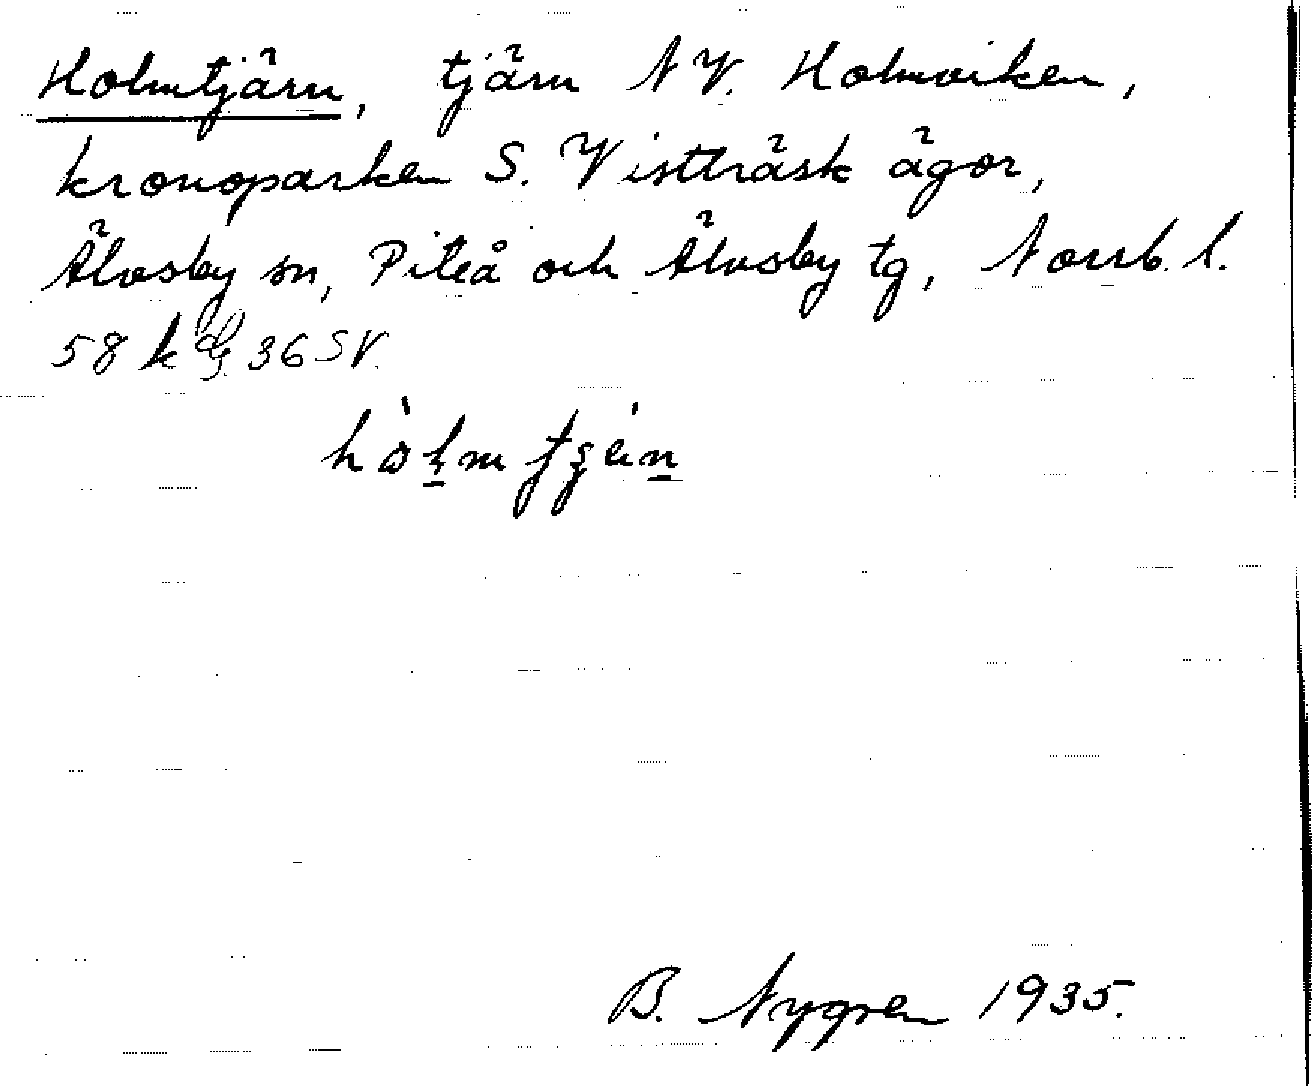 Holmtjärn, tjärn NV. Holmviken,
kronoparken S. Vistträsk ägor,
Älvsby sn, Piteå och Älvsby tg, Norrb. l.
58 k 36 SV.
B. Nygren 1935.